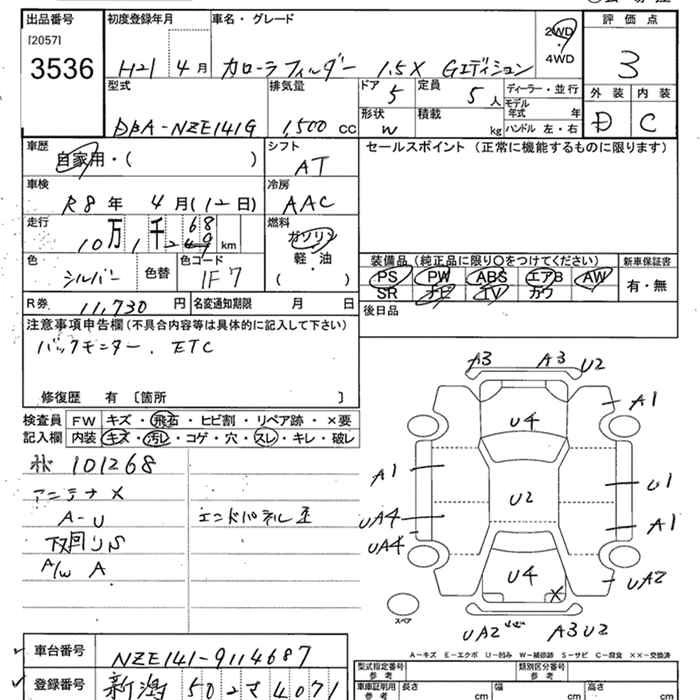 出品番号 初度登録年月 車名・グレード 評価点
[2057] 3536
H21 4月 カローラフィルダー 1.5X Gエディション 2WD・4WD 3
型式 排気量 ドア 5 定員 5人 ディーラー・並行 外装 内装
DBA-NZE141G 1,500cc 形状 W 積載 kg モデル年式 年 ハンドル 左・右 D C
車歴 自家用・( ) シフト AT セールスポイント (正常に機能するものに限ります)
車検 R8年 4月(12日) 冷房 AAC
走行 10万1千2 68 km 燃料 ガソリン・軽・油 ( )
装備品 (純正品に限り○をつけてください) 新車保証書
色 シルバー 色替 色コード 1F7 PS PW ABS エアB AW 有・無
SR ナビ TV カワ
R券 11,730円 名変通知期限 月 日 後日品
注意事項申告欄 (不具合内容等は具体的に記入して下さい)
バックモニター、ETC
修復歴 有 〔箇所 〕
検査員 FW キズ・飛石・ヒビ割・リペア跡・×要
記入欄 内装 キズ・汚レ・コゲ・穴・スレ・キレ・破レ
101268
アンテナ×
A-U エンドパネル歪
下回りS
A/W A
A3 A3 U2
U4 A1
A1 U2 U1
UA4 A1
UA4
U4 × UA2
スペア
UA2 A3U2
A-キズ E-エクボ U-凹み W-補修跡 S-サビ C-腐食 ××-交換済
車台番号 NZE141-9114687 型式指定番号 参考 類別区分番号 参考
登録番号 新潟 502さ4071 車庫証明用 参考 長さ cm 幅 cm 高さ cm